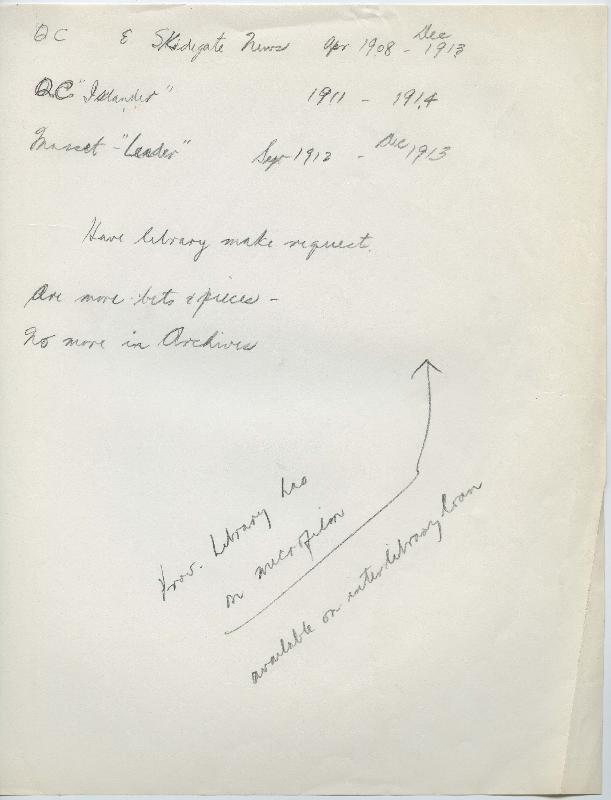 QC & Skidegate News Apr 1908 - Dec 1913
QC "Islander" 1911 - 1914
Masset - "Leader" Sep 1912 - Dec 1913
Have library make request.
Are more bits & pieces -
No more in Archives
Prov. Library has
on microfilm
available on interlibrary loan